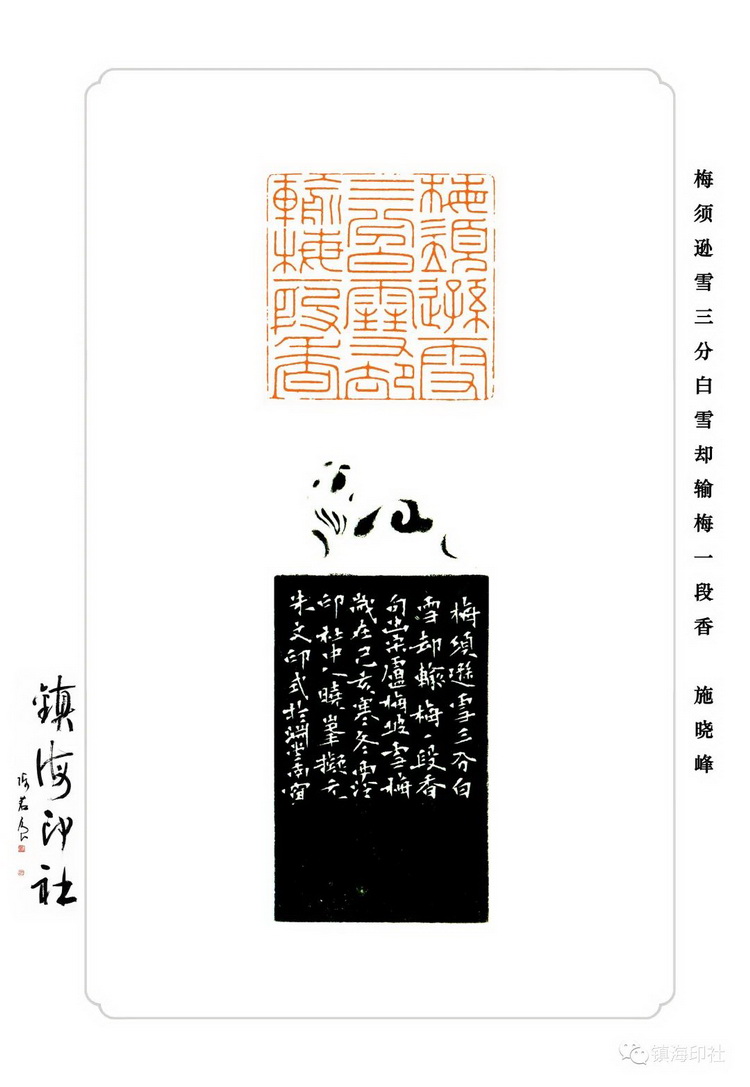 梅须逊雪三分白雪却输梅一段香 施晓峰
梅須遜雪
三分白雪却
輸梅一段香
梅須遜雪三分白
雪却輸梅一段香
句出宋盧梅坡雪梅
歲在己亥寒冬西泠
印社中人曉峯擬元
朱文印式於
鎮海印社
镇海印社